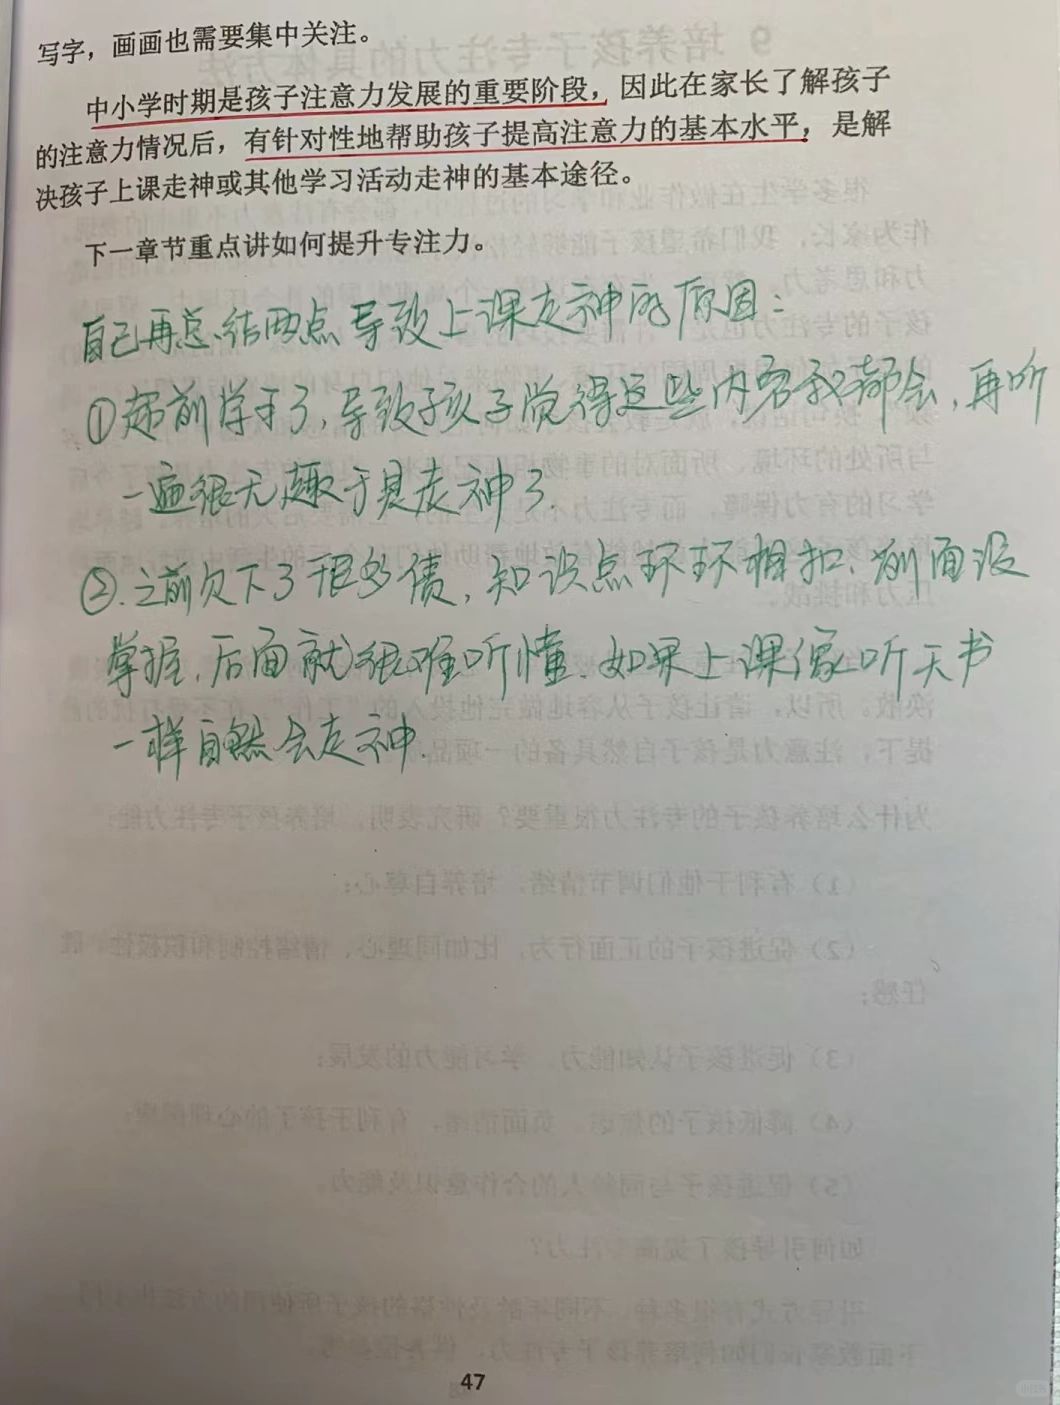 写字，画画也需要集中关注。
中小学时期是孩子注意力发展的重要阶段，因此在家长了解孩子
的注意力情况后，有针对性地帮助孩子提高注意力的基本水平，是解
决孩子上课走神或其他学习活动走神的基本途径。
下一章节重点讲如何提升专注力。
自己再总结两点导致上课走神的原因：
①超前学习了，导致孩子觉得这些内容我都会，再听
一遍很无趣于是走神了.
②.之前欠下了很多债，知识点环环相扣、前面没
掌握，后面就很难听懂.如果上课像听天书
一样自然会走神.
47